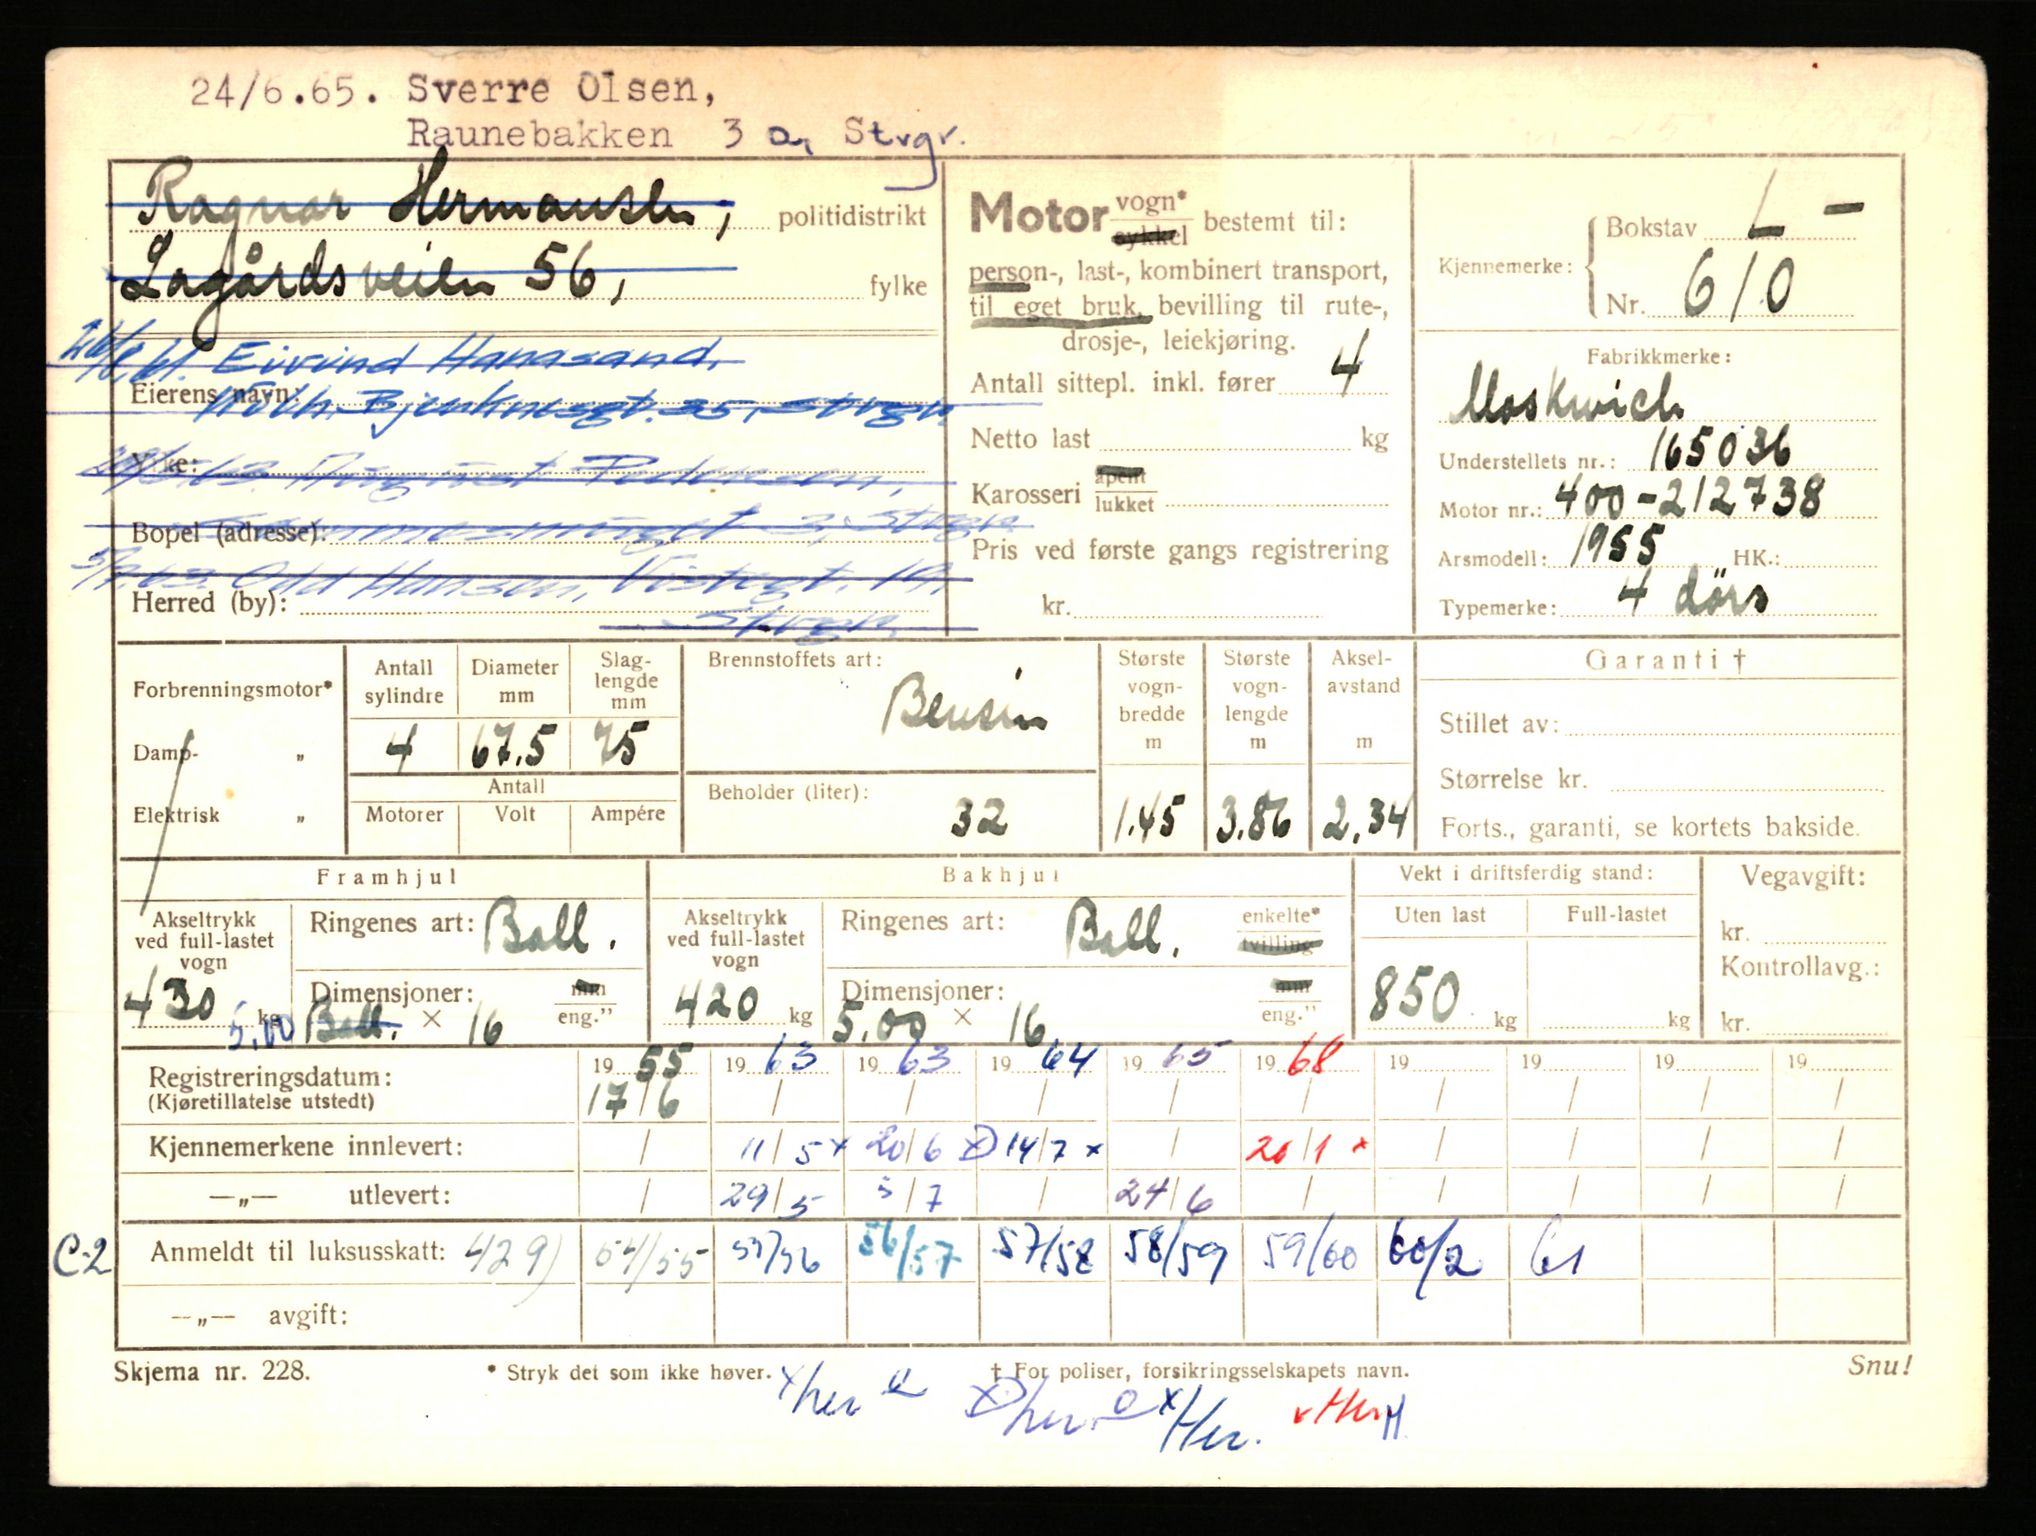 24/6.65. Sverre Olsen,
Raunebakken 3 a, Strgr.
Ragnar Hermansen, politidistrikt
Lagårdsveien 56, fylke
61. Eivind Hanasand,
Eierens navn:
35, Strgr.
Yrke: August Pedersen,
Bopel (adresse): 3, Strgr.
3/7.63. Odd Hansen, Vistegt. 19,
Herred (by): Strgr.
Motor vogn* sykkel bestemt til:
person-, last-, kombinert transport,
til eget bruk, bevilling til rute-,
drosje-, leiekjøring.
Antall sittepl. inkl. fører 4
Netto last kg
Karosseri åpent lukket
Pris ved første gangs registrering
kr.
Kjennemerke: Bokstav L –
Nr. 610
Fabrikkmerke:
Moskwich
Understellets nr.: 165036
Motor nr.: 400-212738
Årsmodell: 1955 HK.:
Typemerke: 4 dørs
Forbrenningsmotor*
Damp- „
Elektrisk „
Antall sylindre 4
Diameter mm 67.5
Slag-lengde mm 75
Antall
Motorer Volt Ampére
Brennstoffets art: Bensin
Beholder (liter): 32
Største vogn-bredde m 1.45
Største vogn-lengde m 3.86
Aksel-avstand m 2.34
Garanti †
Stillet av:
Størrelse kr.
Forts., garanti, se kortets bakside.
Framhjul
Akseltrykk ved full-lastet vogn 430 kg
Ringenes art: Ball.
Dimensjoner: 5.00 Ball. × 16 mm eng.”
Bakhjul
Akseltrykk ved full-lastet vogn 420 kg
Ringenes art: Ball. enkelte* tvilling
Dimensjoner: 5.00 × 16 mm eng.”
Vekt i driftsferdig stand:
Uten last Full-lastet
850 kg kg
Vegavgift:
kr.
Kontrollavg.:
kr.
Registreringsdatum: 19 55 19 63 19 63 19 64 19 65 19 68 19 19 19 19
(Kjøretillatelse utstedt) 17/6 / / / / / / / / /
Kjennemerkene innlevert: / 11/5 x 20/6 x 14/7 x / 20/1 x / / / /
—„— utlevert: / 29/5 3/7 / 24/6 / / / / /
C-2 Anmeldt til luksusskatt: 429) 54/55 55/56 56/57 57/58 58/59 59/60 60/2 61
—„— avgift:
Skjema nr. 228. * Stryk det som ikke høver. † For poliser, forsikringsselskapets navn. Snu!
x her x her. x Her. x Her